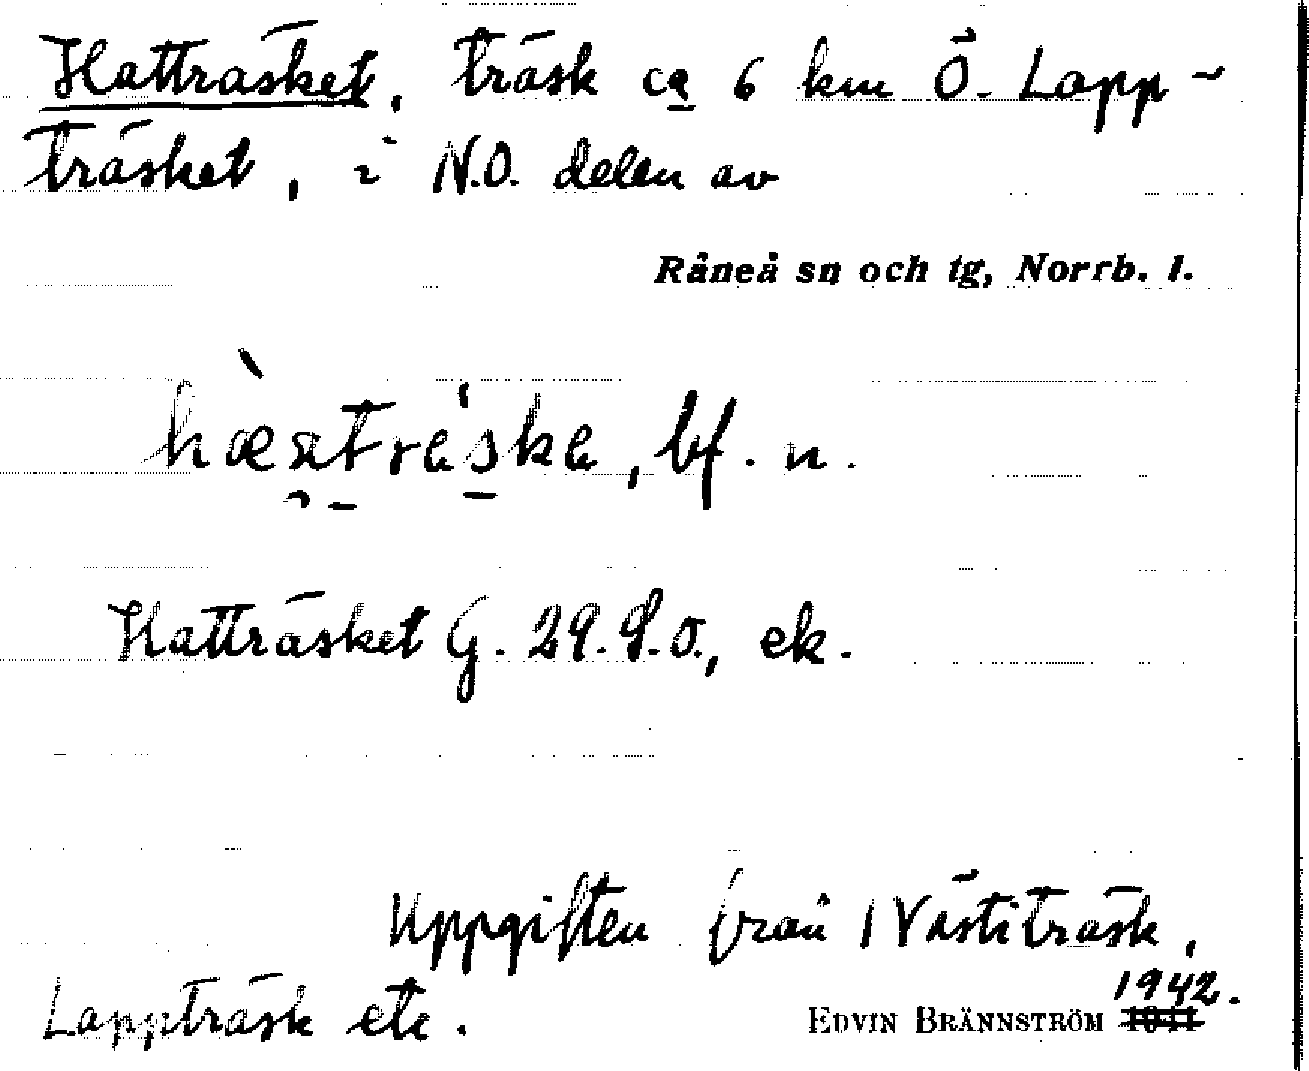 Hatträsket, träsk ca 6 km Ö. Lapp-
träsket, i N.O. delen av
Råneå sn och tg, Norrb. l.
bf. n.
Hatträsket G. 29. S.O., ek.
Uppgiften från Västiträsk,
Lappträsk etc.
1942.
EDVIN BRÄNNSTRÖM 1941